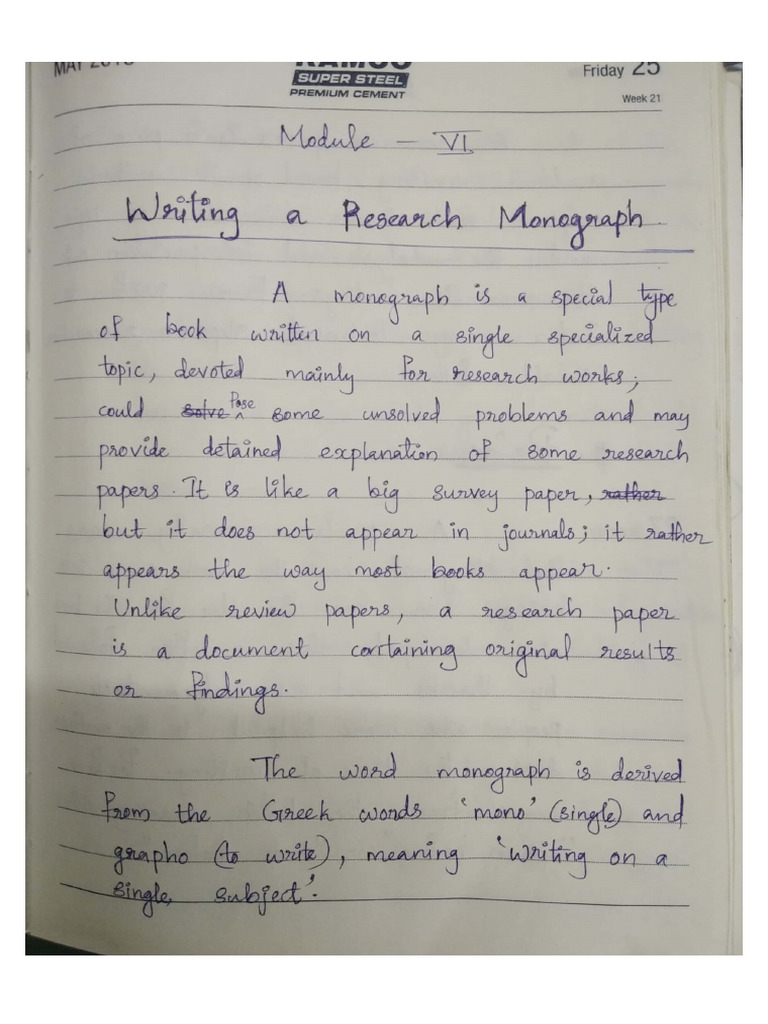 Friday 25
SUPER STEEL
PREMIUM CEMENT
Week 21
Module - VI
Writing a Research Monograph
A monograph is a special type
of book written on a single specialized
topic, devoted mainly for research works;
could solve Pose some unsolved problems and may
provide detained explanation of some research
papers. It is like a big survey paper, rather
but it does not appear in journals; it rather
appears the way most books appear.
Unlike review papers, a research paper
is a document containing original results
or findings.
The word monograph is derived
from the Greek words 'mono' (single) and
grapho (to write), meaning 'writing on a
single subject'.